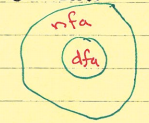 nfa
dfa